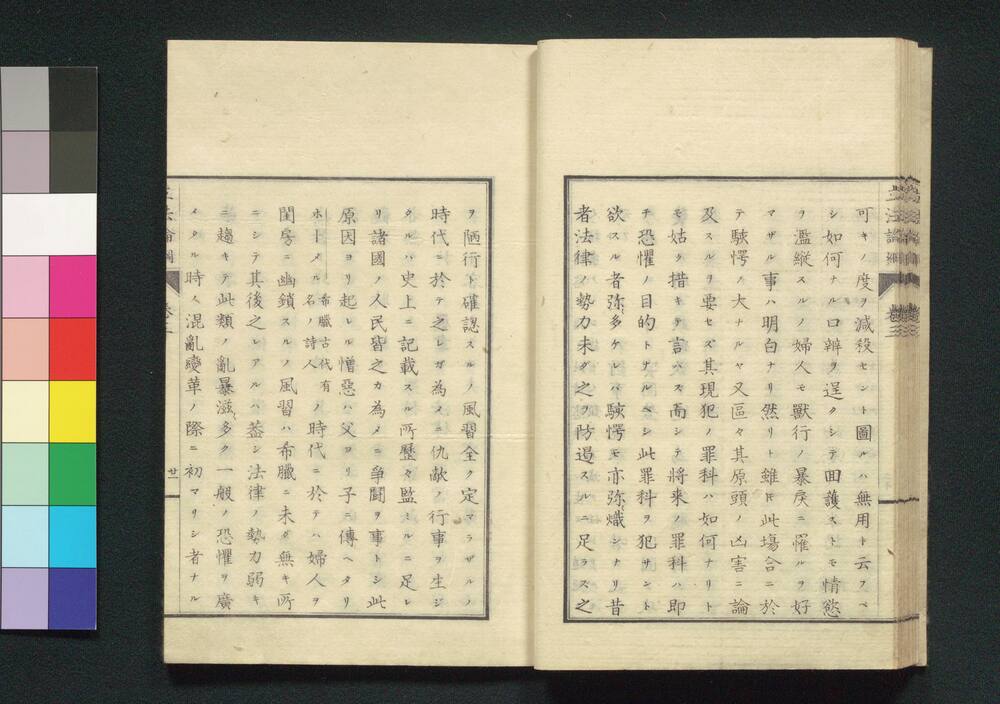 可キノ度ヲ減殺セント圖ルハ無用ト云フベ
シ如何ナル口辨ヲ逞クシテ回護ストモ情慾
ヲ濫縱スルノ婦人モ獸行ノ暴戾ニ罹ルヲ好
マザル事ハ明白ナリ然リト雖𪜈此塲合ニ於
テ駭愕ノ大ナルヤ又區々其原頭ノ凶害ニ論
及スルヲ要セズ其現犯ノ罪科ハ如何ナリト
モ姑ク措キテ言ハズ而シテ將來ノ罪科ハ即
チ恐懼ノ目的トサルベシ此罪科ヲ犯サント
欲スル者弥多ケレバ駭愕モ亦弥熾ンナリ昔
者法律ノ勢力未ダ之ヲ防遏スルニ足ラス之
ヲ陋行ト確認スルノ風習全ク定マラザルノ
時代ニ於テ之レガ為メニ仇敵ノ行事ヲ生ジ
タルハ史上ニ記載スル所歷々監ミルニ足レ
リ諸國ノ人民皆之カ為メニ爭鬪ヲ事トシ此
原因ヨリ起レル憎惡ハ父ヨリ子ニ傳ヘタリ
ホーメル希臘古代有名ノ詩人ノ時代ニ於テハ婦人ヲ
閨房ニ幽鎖スルノ風習ハ希臘ニ未ダ無キ所
ニシテ其後之レアルハ葢シ法律ノ勢力弱キ
ニ趨キテ此類ノ亂暴滋多ク一般ノ恐懼ヲ廣
メタル時人混亂變革ノ際ニ初マリシ者ナル
立法論綱
卷三
廿一